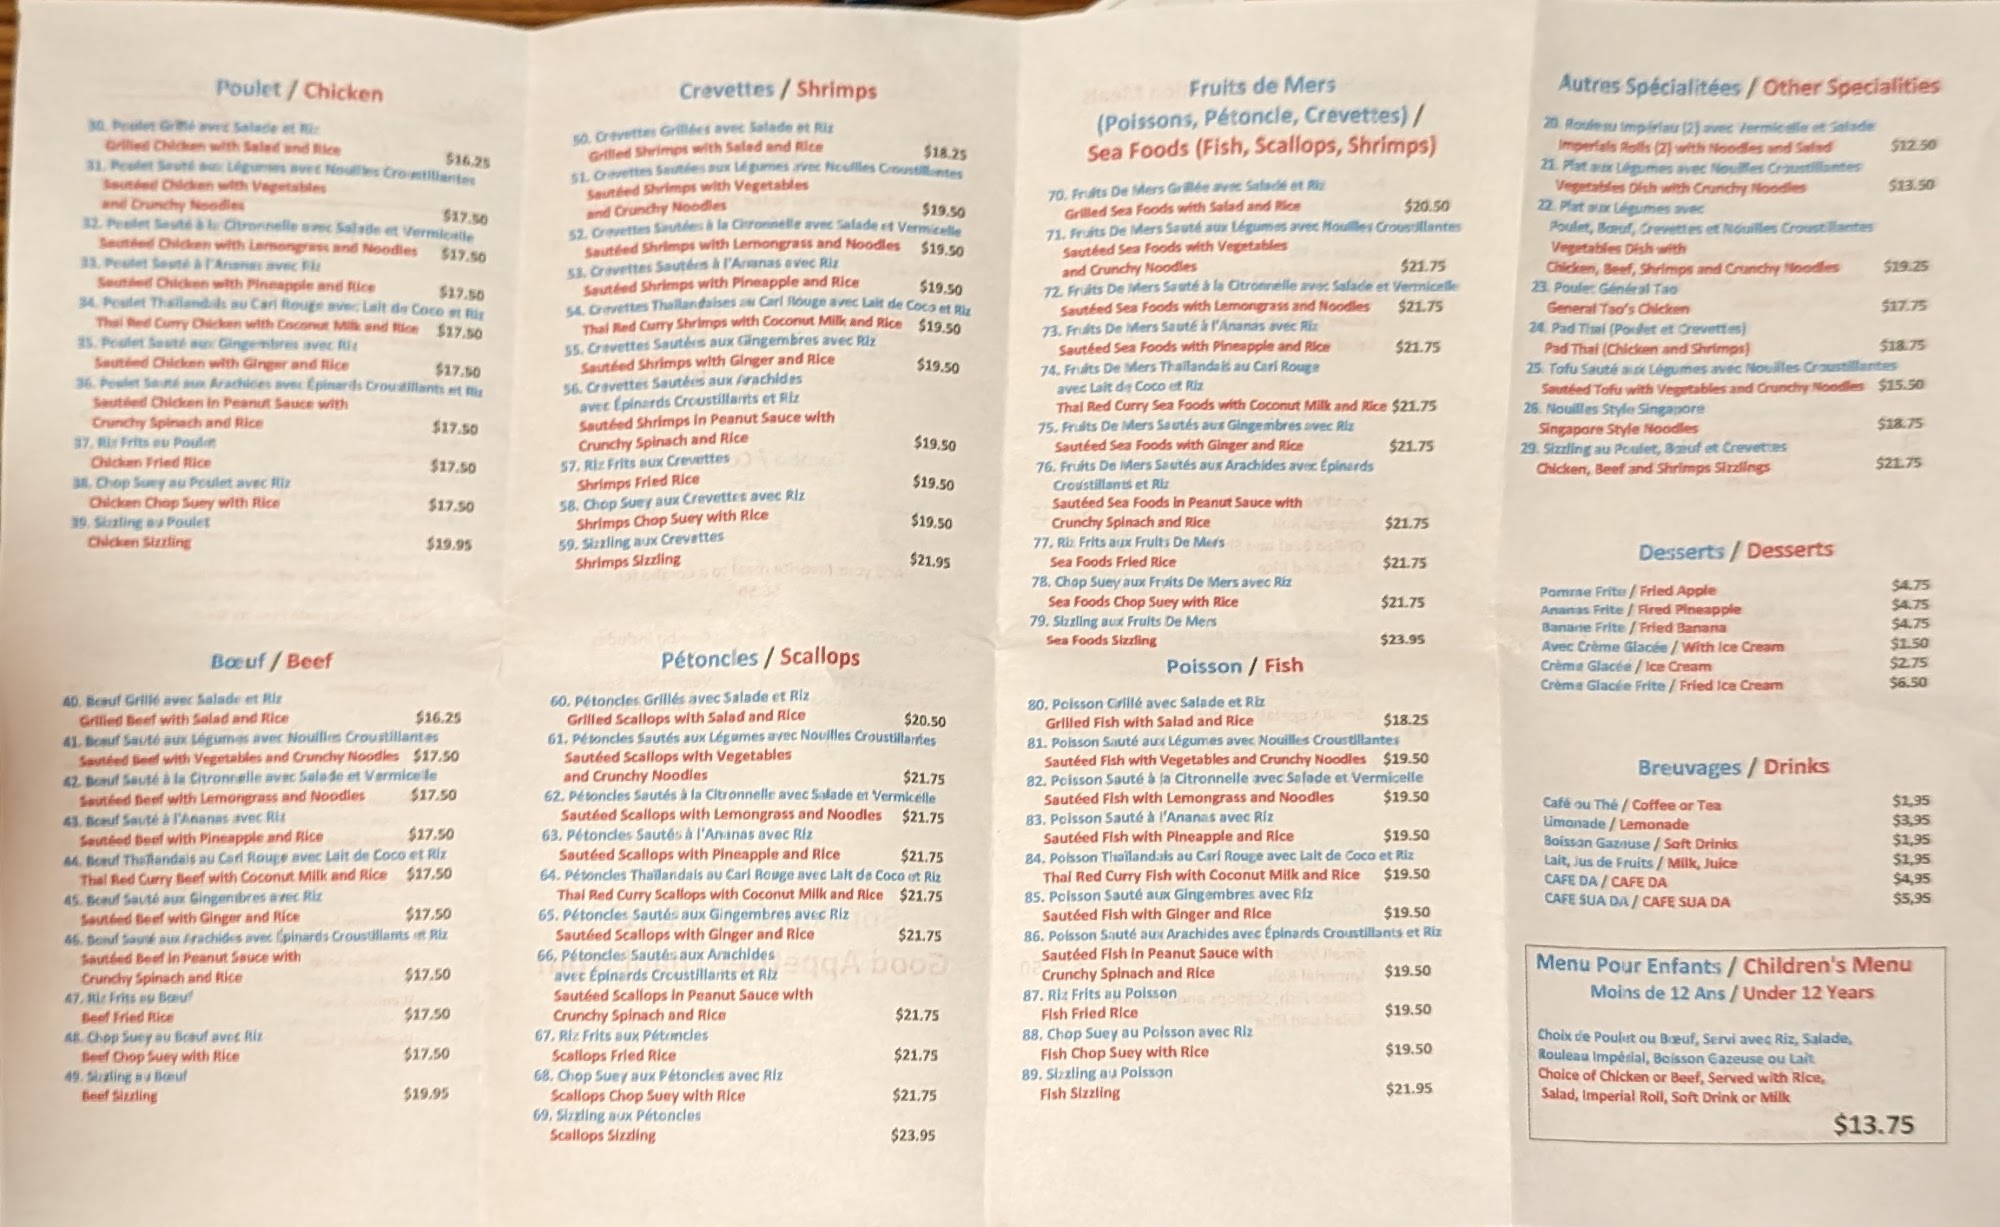 Poulet / Chicken
30. Poulet Grillé avec Salade et Riz
Grilled Chicken with Salad and Rice $16.25
31. Poulet Sauté aux Légumes avec Nouilles Croustillantes
Sautéed Chicken with Vegetables
and Crunchy Noodles $17.50
32. Poulet Sauté à la Citronnelle avec Salade et Vermicelle
Sautéed Chicken with Lemongrass and Noodles $17.50
33. Poulet Sauté à l'Ananas avec Riz
Sautéed Chicken with Pineapple and Rice $17.50
34. Poulet Thaïlandais au Cari Rouge avec Lait de Coco et Riz
Thai Red Curry Chicken with Coconut Milk and Rice $17.50
35. Poulet Sauté aux Gingembres avec Riz
Sautéed Chicken with Ginger and Rice $17.50
36. Poulet Sauté aux Arachides avec Épinards Croustillants et Riz
Sautéed Chicken in Peanut Sauce with
Crunchy Spinach and Rice $17.50
37. Riz Frits au Poulet
Chicken Fried Rice $17.50
38. Chop Suey au Poulet avec Riz
Chicken Chop Suey with Rice $17.50
39. Sizzling au Poulet
Chicken Sizzling $19.95
Bœuf / Beef
40. Bœuf Grillé avec Salade et Riz
Grilled Beef with Salad and Rice $16.25
41. Bœuf Sauté aux Légumes avec Nouilles Croustillantes
Sautéed Beef with Vegetables and Crunchy Noodles $17.50
42. Bœuf Sauté à la Citronnelle avec Salade et Vermicelle
Sautéed Beef with Lemongrass and Noodles $17.50
43. Bœuf Sauté à l'Ananas avec Riz
Sautéed Beef with Pineapple and Rice $17.50
44. Bœuf Thaïlandais au Cari Rouge avec Lait de Coco et Riz
Thai Red Curry Beef with Coconut Milk and Rice $17.50
45. Bœuf Sauté aux Gingembres avec Riz
Sautéed Beef with Ginger and Rice $17.50
46. Bœuf Sauté aux Arachides avec Épinards Croustillants et Riz
Sautéed Beef in Peanut Sauce with
Crunchy Spinach and Rice $17.50
47. Riz Frits au Bœuf
Beef Fried Rice $17.50
48. Chop Suey au Bœuf avec Riz
Beef Chop Suey with Rice $17.50
49. Sizzling au Bœuf
Beef Sizzling $19.95
Crevettes / Shrimps
50. Crevettes Grillées avec Salade et Riz
Grilled Shrimps with Salad and Rice $18.25
51. Crevettes Sautées aux Légumes avec Nouilles Croustillantes
Sautéed Shrimps with Vegetables
and Crunchy Noodles $19.50
52. Crevettes Sautées à la Citronnelle avec Salade et Vermicelle
Sautéed Shrimps with Lemongrass and Noodles $19.50
53. Crevettes Sautées à l'Ananas avec Riz
Sautéed Shrimps with Pineapple and Rice $19.50
54. Crevettes Thaïlandaises au Cari Rouge avec Lait de Coco et Riz
Thai Red Curry Shrimps with Coconut Milk and Rice $19.50
55. Crevettes Sautées aux Gingembres avec Riz
Sautéed Shrimps with Ginger and Rice $19.50
56. Crevettes Sautées aux Arachides
avec Épinards Croustillants et Riz
Sautéed Shrimps in Peanut Sauce with
Crunchy Spinach and Rice $19.50
57. Riz Frits aux Crevettes
Shrimps Fried Rice $19.50
58. Chop Suey aux Crevettes avec Riz
Shrimps Chop Suey with Rice $19.50
59. Sizzling aux Crevettes
Shrimps Sizzling $21.95
Pétoncles / Scallops
60. Pétoncles Grillés avec Salade et Riz
Grilled Scallops with Salad and Rice $20.50
61. Pétoncles Sautés aux Légumes avec Nouilles Croustillantes
Sautéed Scallops with Vegetables
and Crunchy Noodles $21.75
62. Pétoncles Sautés à la Citronnelle avec Salade et Vermicelle
Sautéed Scallops with Lemongrass and Noodles $21.75
63. Pétoncles Sautés à l'Ananas avec Riz
Sautéed Scallops with Pineapple and Rice $21.75
64. Pétoncles Thaïlandais au Cari Rouge avec Lait de Coco et Riz
Thai Red Curry Scallops with Coconut Milk and Rice $21.75
65. Pétoncles Sautés aux Gingembres avec Riz
Sautéed Scallops with Ginger and Rice $21.75
66. Pétoncles Sautés aux Arachides
avec Épinards Croustillants et Riz
Sautéed Scallops in Peanut Sauce with
Crunchy Spinach and Rice $21.75
67. Riz Frits aux Pétoncles
Scallops Fried Rice $21.75
68. Chop Suey aux Pétoncles avec Riz
Scallops Chop Suey with Rice $21.75
69. Sizzling aux Pétoncles
Scallops Sizzling $23.95
Fruits de Mers
(Poissons, Pétoncle, Crevettes) /
Sea Foods (Fish, Scallops, Shrimps)
70. Fruits De Mers Grillée avec Salade et Riz
Grilled Sea Foods with Salad and Rice $20.50
71. Fruits De Mers Sauté aux Légumes avec Nouilles Croustillantes
Sautéed Sea Foods with Vegetables
and Crunchy Noodles $21.75
72. Fruits De Mers Sauté à la Citronnelle avec Salade et Vermicelle
Sautéed Sea Foods with Lemongrass and Noodles $21.75
73. Fruits De Mers Sauté à l'Ananas avec Riz
Sautéed Sea Foods with Pineapple and Rice $21.75
74. Fruits De Mers Thaïlandais au Cari Rouge
avec Lait de Coco et Riz
Thai Red Curry Sea Foods with Coconut Milk and Rice $21.75
75. Fruits De Mers Sautés aux Gingembres avec Riz
Sautéed Sea Foods with Ginger and Rice $21.75
76. Fruits De Mers Sautés aux Arachides avec Épinards
Croustillants et Riz
Sautéed Sea Foods in Peanut Sauce with
Crunchy Spinach and Rice $21.75
77. Riz Frits aux Fruits De Mers
Sea Foods Fried Rice $21.75
78. Chop Suey aux Fruits De Mers avec Riz
Sea Foods Chop Suey with Rice $21.75
79. Sizzling aux Fruits De Mers
Sea Foods Sizzling $23.95
Poisson / Fish
80. Poisson Grillé avec Salade et Riz
Grilled Fish with Salad and Rice $18.25
81. Poisson Sauté aux Légumes avec Nouilles Croustillantes
Sautéed Fish with Vegetables and Crunchy Noodles $19.50
82. Poisson Sauté à la Citronnelle avec Salade et Vermicelle
Sautéed Fish with Lemongrass and Noodles $19.50
83. Poisson Sauté à l'Ananas avec Riz
Sautéed Fish with Pineapple and Rice $19.50
84. Poisson Thaïlandais au Cari Rouge avec Lait de Coco et Riz
Thai Red Curry Fish with Coconut Milk and Rice $19.50
85. Poisson Sauté aux Gingembres avec Riz
Sautéed Fish with Ginger and Rice $19.50
86. Poisson Sauté aux Arachides avec Épinards Croustillants et Riz
Sautéed Fish in Peanut Sauce with
Crunchy Spinach and Rice $19.50
87. Riz Frits au Poisson
Fish Fried Rice $19.50
88. Chop Suey au Poisson avec Riz
Fish Chop Suey with Rice $19.50
89. Sizzling au Poisson
Fish Sizzling $21.95
Autres Spécialitées / Other Specialities
20. Rouleau Impériau (2) avec Vermicelle et Salade
Imperials Rolls (2) with Noodles and Salad $12.50
21. Plat aux Légumes avec Nouilles Croustillantes
Vegetables Dish with Crunchy Noodles $13.50
22. Plat aux Légumes avec
Poulet, Bœuf, Crevettes et Nouilles Croustillantes
Vegetables Dish with
Chicken, Beef, Shrimps and Crunchy Noodles $19.25
23. Poulet Général Tao
General Tao's Chicken $17.75
24. Pad Thai (Poulet et Crevettes)
Pad Thai (Chicken and Shrimps) $18.75
25. Tofu Sauté aux Légumes avec Nouilles Croustillantes
Sautéed Tofu with Vegetables and Crunchy Noodles $15.50
26. Nouilles Style Singapore
Singapore Style Noodles $18.75
29. Sizzling au Poulet, Bœuf et Crevettes
Chicken, Beef and Shrimps Sizzlings $21.75
Desserts / Desserts
Pomme Frite / Fried Apple $4.75
Ananas Frite / Fired Pineapple $4.75
Banane Frite / Fried Banana $4.75
Avec Crème Glacée / With Ice Cream $1.50
Crème Glacée / Ice Cream $2.75
Crème Glacée Frite / Fried Ice Cream $6.50
Breuvages / Drinks
Café ou Thé / Coffee or Tea $1,95
Limonade / Lemonade $3,95
Boisson Gazeuse / Soft Drinks $1,95
Lait, Jus de Fruits / Milk, Juice $1,95
CAFE DA / CAFE DA $4,95
CAFE SUA DA / CAFE SUA DA $5,95
Menu Pour Enfants / Children's Menu
Moins de 12 Ans / Under 12 Years
Choix de Poulet ou Bœuf, Servi avec Riz, Salade,
Rouleau Impérial, Boisson Gazeuse ou Lait
Choice of Chicken or Beef, Served with Rice,
Salad, Imperial Roll, Soft Drink or Milk
$13.75